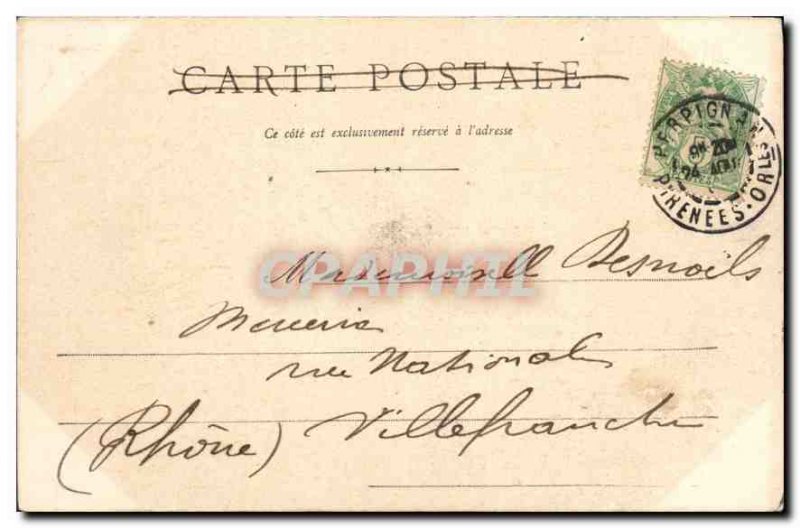 CARTE POSTALE
Ce côté est exclusivement réservé à l'adresse
PERPIGNAN
PYRENEES-ORLES
CPAPHIL
Mademoiselle Desnoëls
Mercerie
rue Nationale
(Rhône) Villefranche